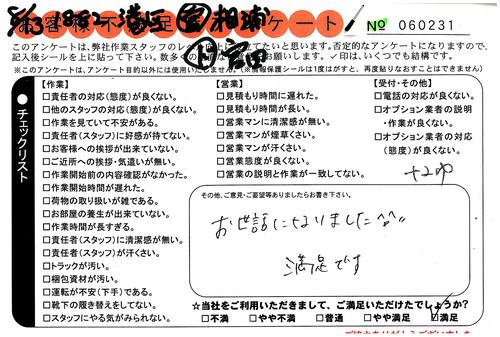 8/13 1882 満三 宮 相浦
お客様不満足アンケート!
№ 060231
田 宮田
このアンケートは、弊社作業スタッフのレベル向上に役立てたいと思います。否定的なアンケートになりますので、
記入後シールを上に貼って下さい。数多くのお願いします。✓印は、いくつでも結構です。
※このアンケートは、アンケート目的以外には使用いたしません。(※情報保護シールは1度はがすと、再度貼りなおすことはできません)
●チェックリスト
【作業】
□責任者の対応(態度)が良くない。
□他のスタッフの対応(態度)が良くない。
□作業を見ていて不安がある。
□責任者(スタッフ)に好感が持てない。
□お客様への挨拶が出来ていない。
□ご近所への挨拶・気遣いが無い。
□作業開始前の内容確認がなかった。
□作業開始時間が遅れた。
□荷物の取り扱いが雑である。
□お部屋の養生が出来ていない。
□作業時間が長すぎる。
□責任者(スタッフ)に清潔感が無い。
□責任者(スタッフ)が汗くさい。
□トラックが汚い。
□梱包資材が汚い。
□運転が不安(下手)である。
□靴下の履き替えをしてない。
□スタッフにやる気がみられない。
【営業】
□見積もり時間に遅れた。
□見積もり時間が長い。
□営業マンに清潔感が無い。
□営業マンが煙草くさい。
□営業マンが汗くさい。
□営業態度が良くない。
□営業の説明と作業が一致してない。
【受付・その他】
□電話の対応が良くない。
□オプション業者の説明
・作業が良くない。
□オプション業者の対応
(態度)が良くない。
その他、ご意見・ご要望等ありましたらお書き下さい。
お世話になりました^^"
満足です
☆当社をご利用いただきまして、ご満足いただけたでしょうか?
□不満 □やや不満 □普通 □やや満足 ☑満足